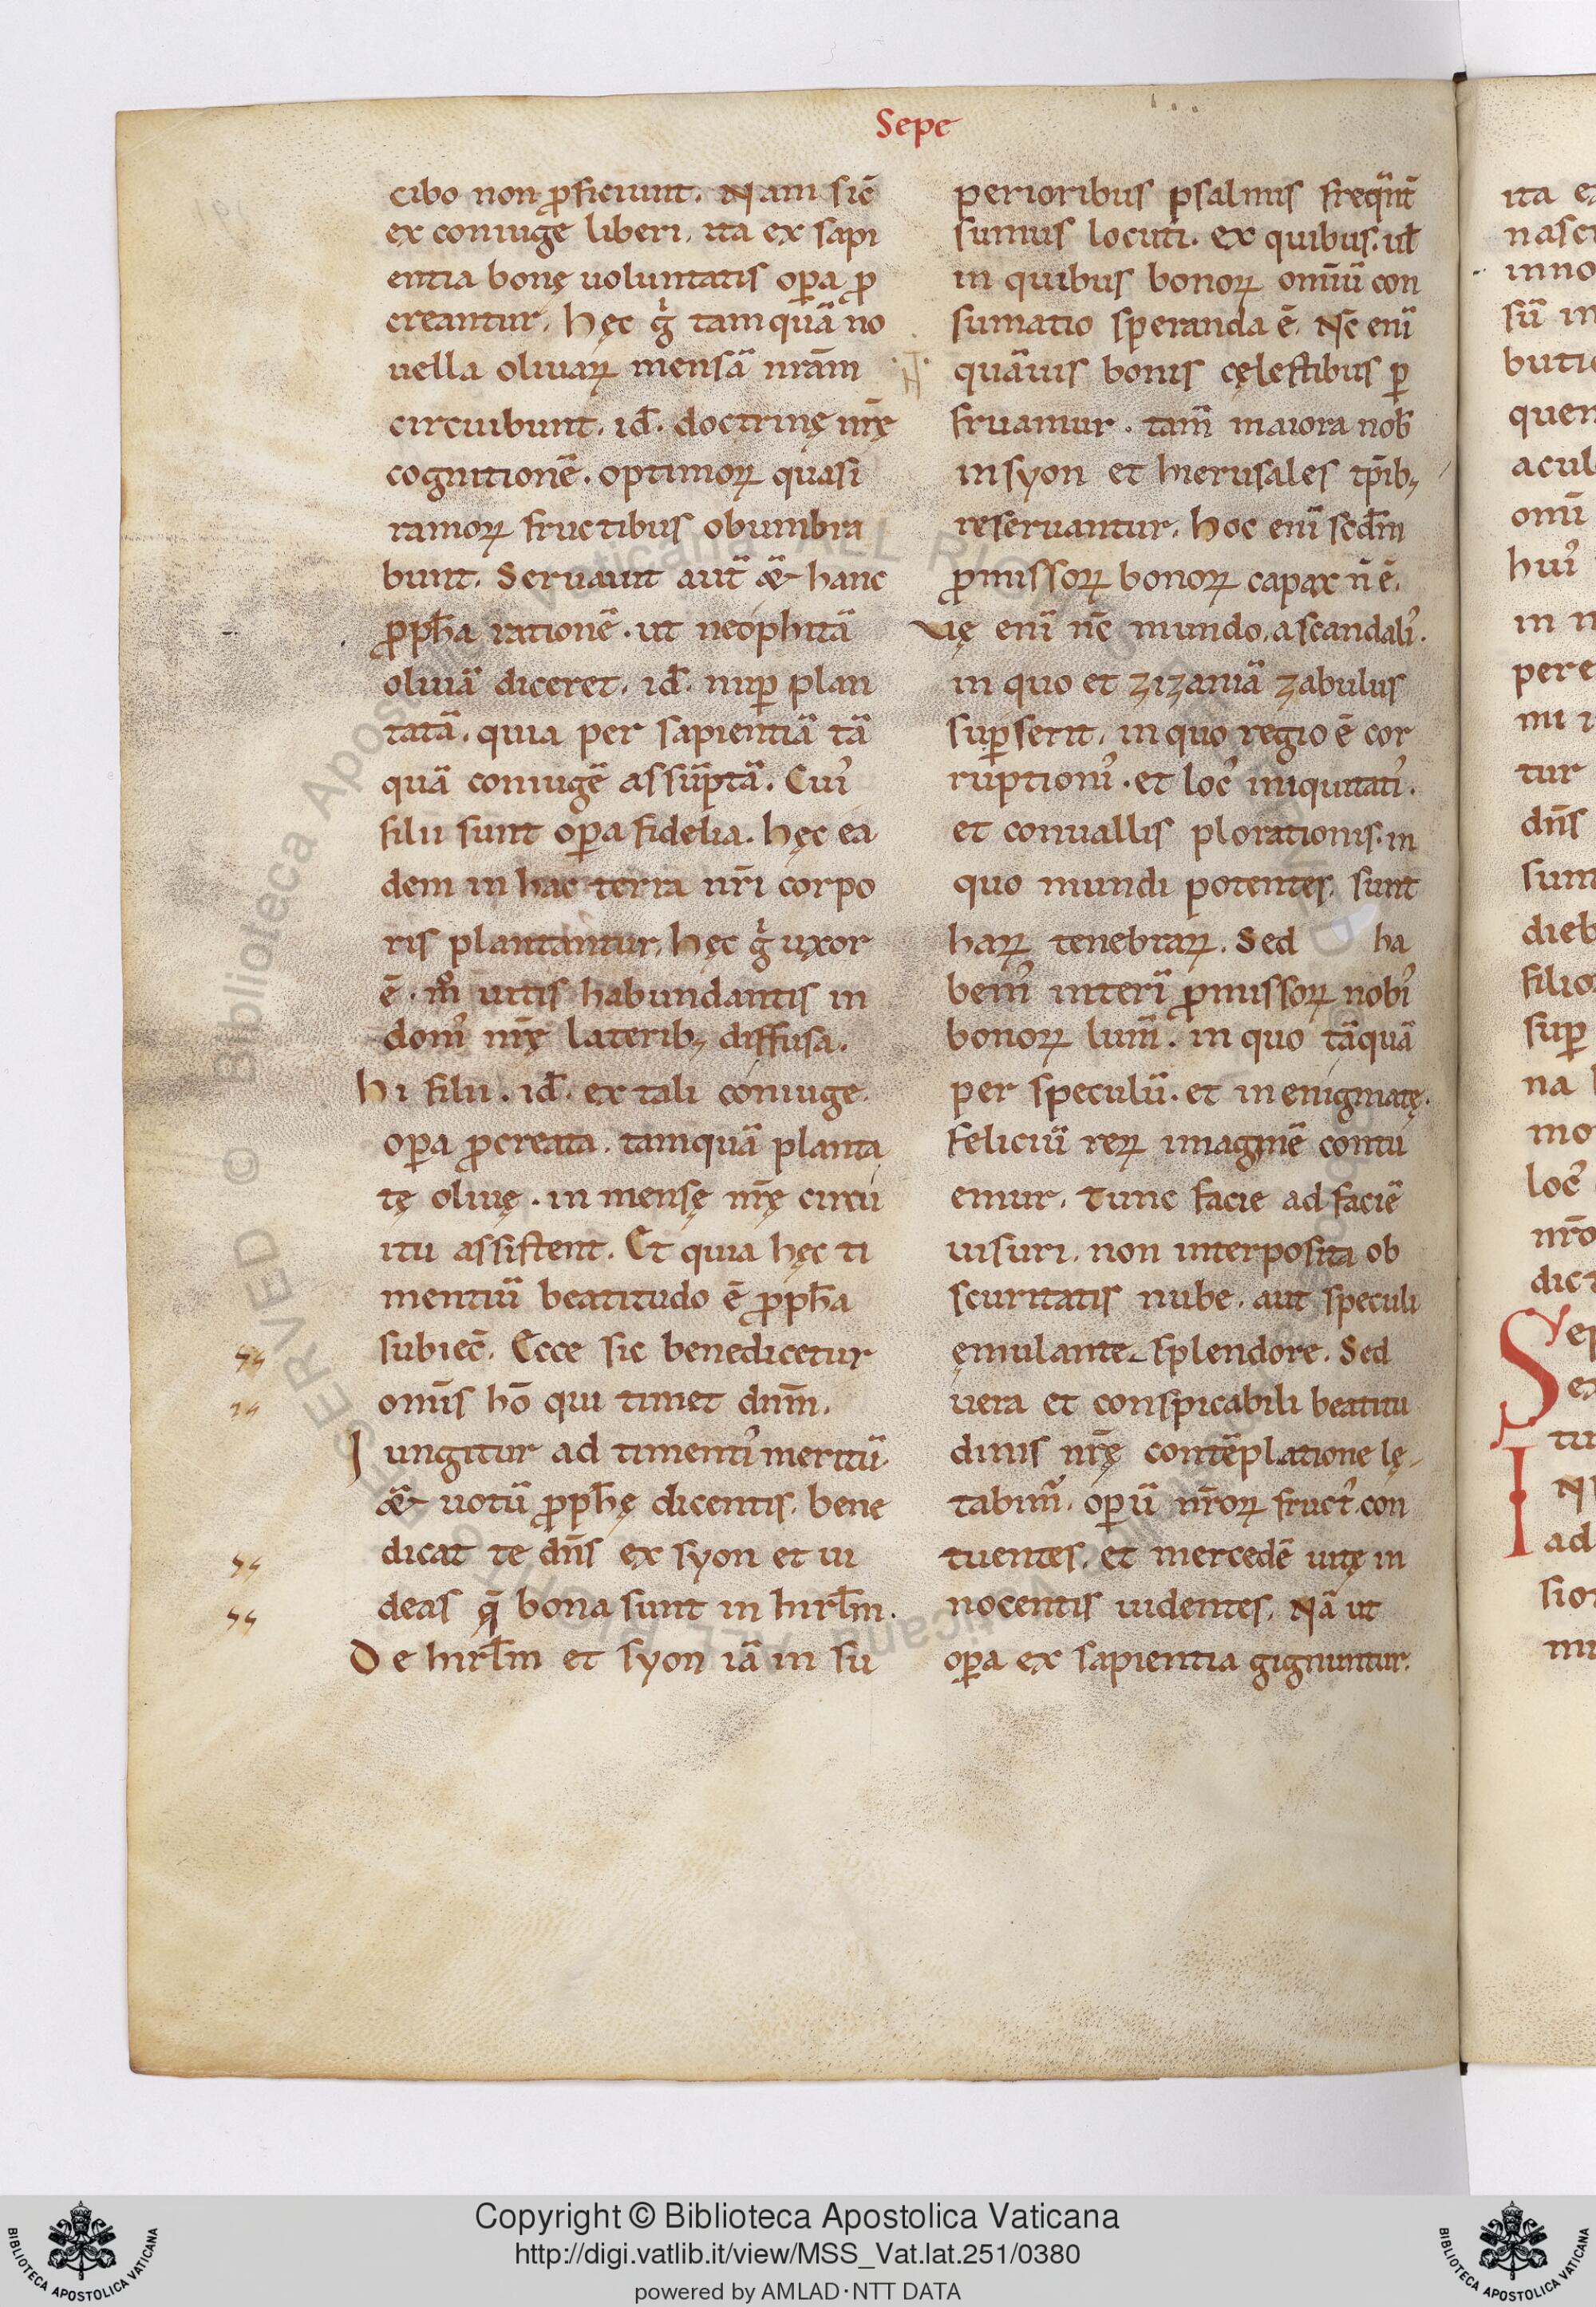 Sepe
cibo non ꝓficiunt. Nam sic̄
ex coniuge liberi. ita ex sapi
entia bonę uoluntatis oꝑa ꝓ
creantur. hęc gͥ tamquā no
uella oliuaꝝ mensā nr̄am
circuibunt. id̄. doctrinę nr̄ę
cognitionē. optimoꝝ quasi
ramoꝝ fructibus obumbra
bunt. Seruauit aut̄ &̄ hanc
ꝓph̄a rationē. ut neophitā
oliuā diceret. id̄. nuꝑ plan
tatā. quia per sapientiā tā
quā coniugē assūptā. Cuiꝰ
filii sunt oꝑa fidelia. hęc ea
dem in hac terra nr̄i corpo
ris plantantur. hęc gͥ uxor
ē. mͦ uitis habundantis in
domꝰ nr̄ę laterib; diffusa.
hi filii. id̄. ex tali coniuge.
oꝑa ꝓcreata. tamquā planta
tę oliuę. in mensę nr̄ę circu
itu assistent. Et quia hęc ti
mentiū beatitudo ē ꝓph̄a
subiec̄. Ecce sic benedicetur
omīs hō qui timet dn̄m.
Iungitur ad timentiꝰ meritū.
&̄ uotū ꝓph̄ę dicentis. bene
dicat te dn̄s ex syon et ui
deas q̄ bona sunt in hirl̄m.
De hirl̄m et syon iā in su
perioribus psalmis freq̄nt̄
sumus locuti. ex quibus. ul̄
in quibus bonoꝝ omīū con
sumatio speranda ē. Nc̄ enī
quāuis bonis cęlestibus ꝑ
fruamur. tam̄ maiora nob̄
in syon et hierusales tp̄ib;
reseruantur. hoc enī scd̄m
ꝓmissoꝝ bonoꝝ capax n̄ ē.
Vę enī nc̄ mundo. a scandaliꝰ.
in quo et zizaniā zabulus
suꝑserit. in quo regio ē cor
ruptioniꝰ. et locꝰ iniquitatiꝰ.
et conuallis plorationis. in
quo mundi potentes. sunt
haꝝ tenebraꝝ. Sed ha
bemꝰ interī ꝓmissoꝝ nobiꝰ
bonoꝝ lum̄. in quo tāquā
per speculū. et in enigmatę.
feliciū reꝝ imaginē contu
emur. Tunc facie ad faciē
uisuri. non interposita ob
scuritatis nube. aut speculi
ęmulante splendore. Sed
uera et conspicabili beatitu
dinis nr̄ę contēplatione lę-
tabimꝰ. oꝑū nr̄oꝝ fructꝰ. con
tuentes. et mercedē uitę in
nocentis uidentes. Nā ut
oꝑa ex sapientia gignuntur.
ita e
nasc
inno
sū in
buti
quen
acul
omī
huiꝰ
in n
pere
mi i
tur
dn̄s
sunt
dieb
filio
suꝑ
na
mo
locꝰ
nr̄o
dict
Sep
ex
tu
IN
ad
sio
mi
Copyright © Biblioteca Apostolica Vaticana
http://digi.vatlib.it/view/MSS_Vat.lat.251/0380
powered by AMLAD·NTT DATA
BIBLIOTECA APOSTOLICA VATICANA
BIBLIOTECA APOSTOLICA VATICANA